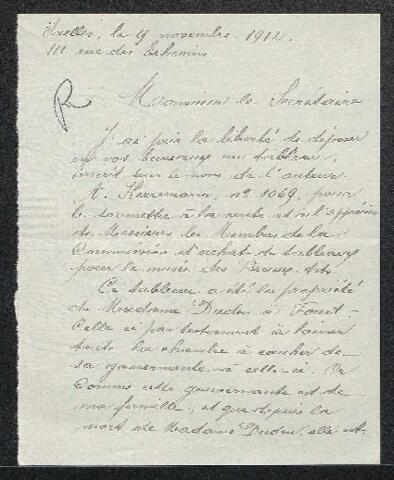 Ixelles, le 9 novembre 1912.
111 rue des Echevins
R
Monsieur le Secrétaire
J'ai pris la liberté de déposer
en vos bureaux un tableau,
inscrit sous le nom de l'auteur
A. no 1069, pour
le soumettre à la vente et à l'appréciation
de Messieurs les Membres de la
Commission d'achat de tableaux
pour le musée des Beaux-Arts.
Ce tableau a été la propriété
de Madame Duden à Forest.
Celle ci par testament a
toute la chambre à coucher de
sa gouvernante à celle-ci. Or
Comme cette gouvernante est de
ma famille, et que depuis la
mort de Madame Duden, elle est